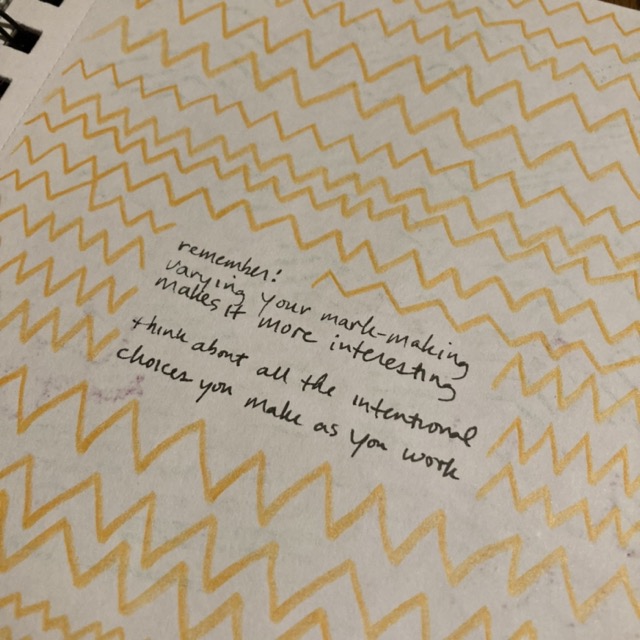 remember!
varying your mark-making
makes it more interesting
think about all the intentional
choices you make as you work